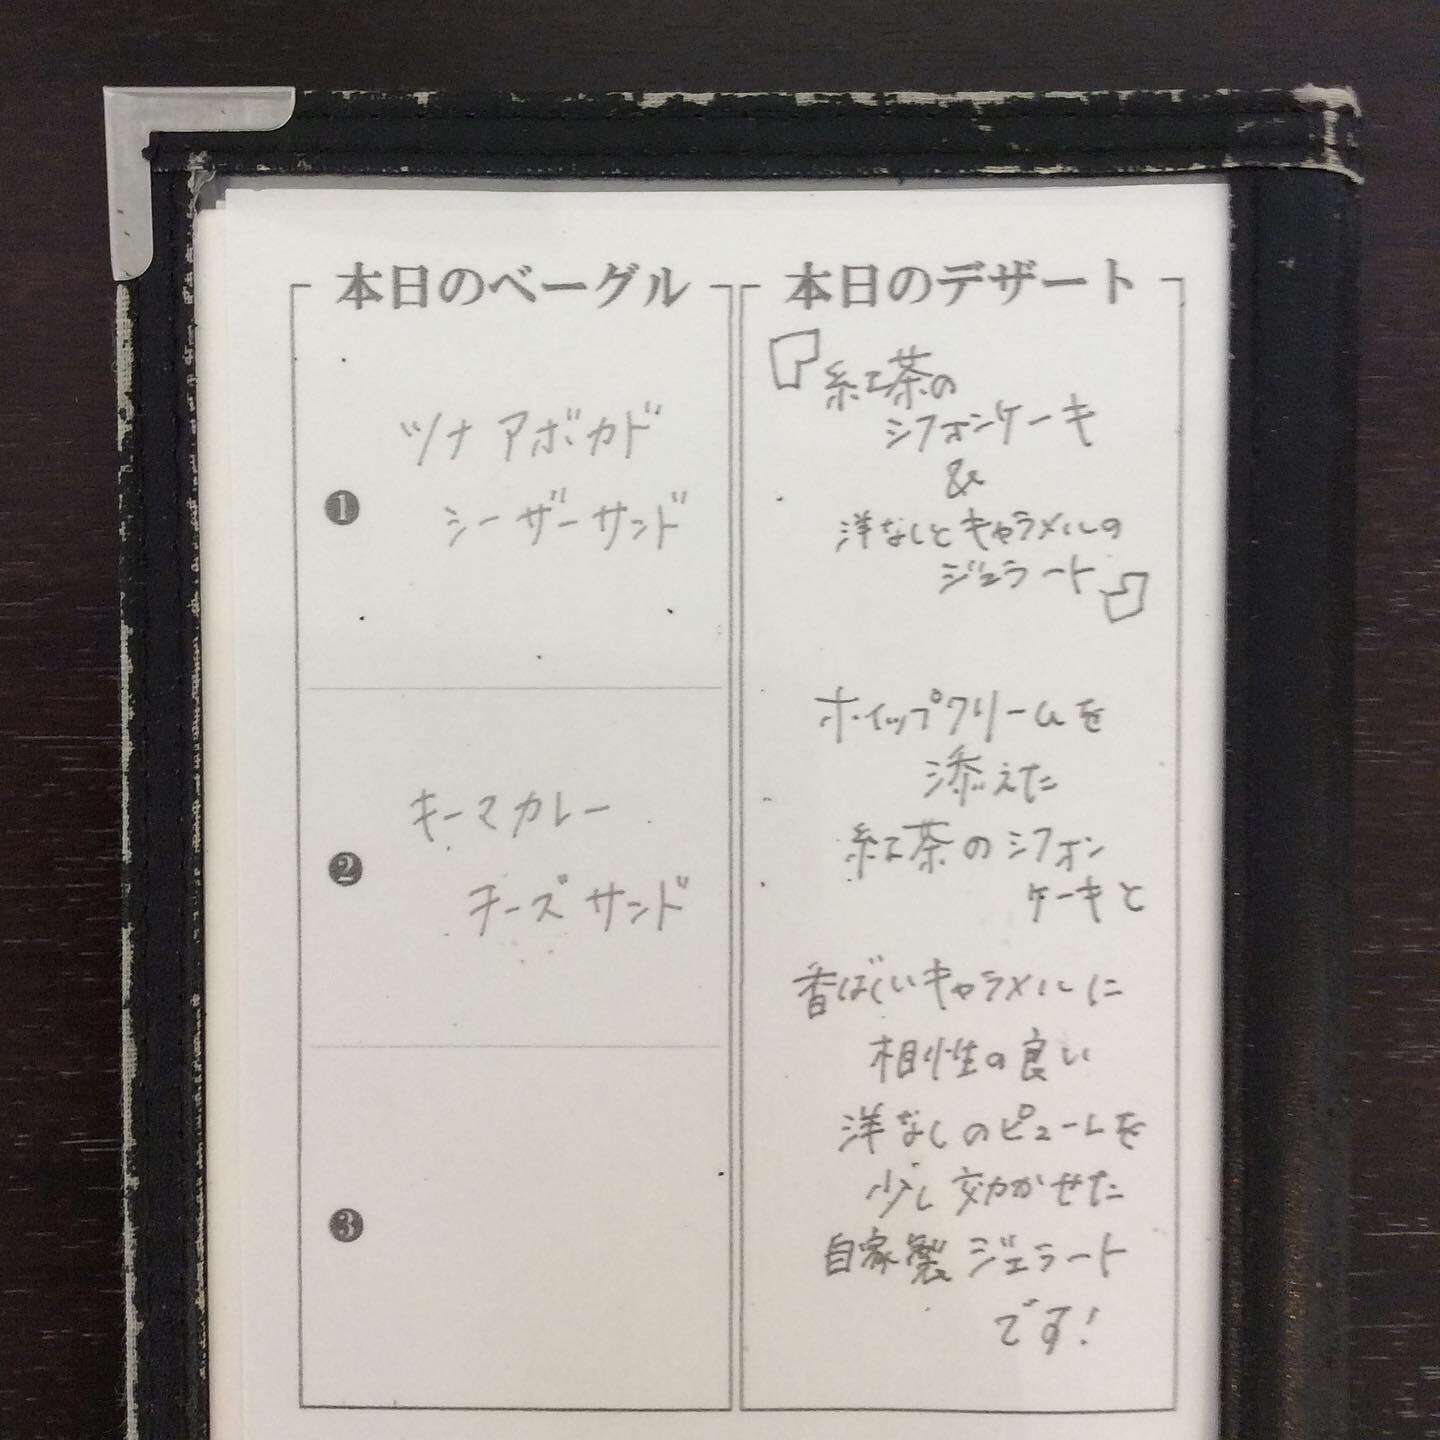 本日のベーグル
❶
ツナ アボカド
シーザーサンド
❷
キーマカレー
チーズ サンド
❸
本日のデザート
『紅茶の
シフォンケーキ
&
洋なしとキャラメルの
ジェラート』
ホイップクリームを
添えた
紅茶のシフォン
ケーキと
香ばしいキャラメルに
相性の良い
洋なしのピューレを
少し効かせた
自家製ジェラート
です!